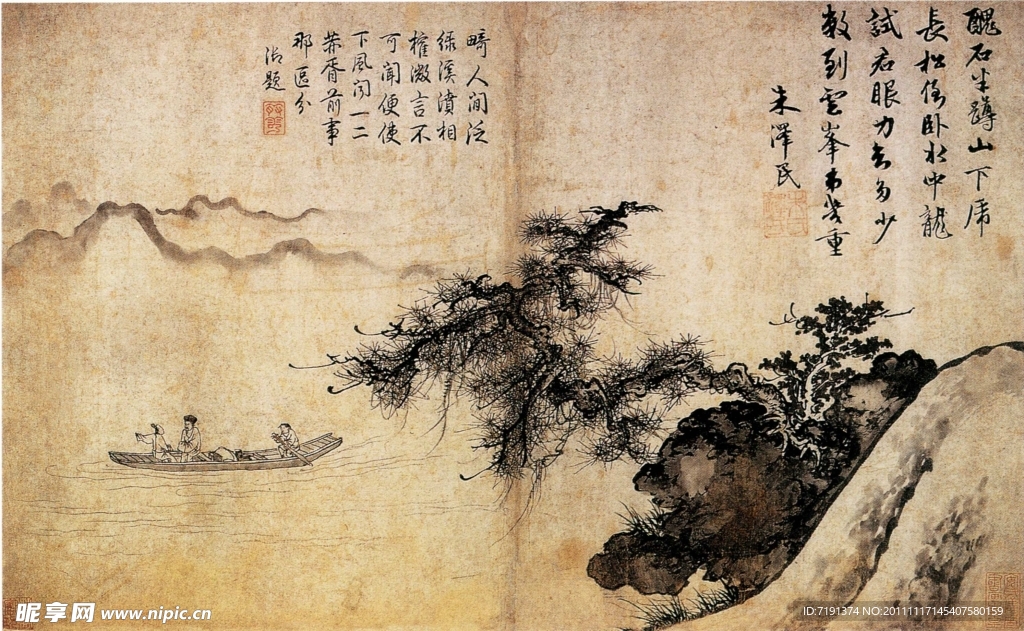 醜石半蹲山下虎
長松倒臥水中龍
試君眼力知多少
數到雲峯第幾重
朱澤民
畸人間泛
綠溪濆相
權微言不
可聞便使
下風問一二
恭胥前事
那區分
御題
昵享网 www.nipic.cn
ID:7191374 NO:20111117145407580159